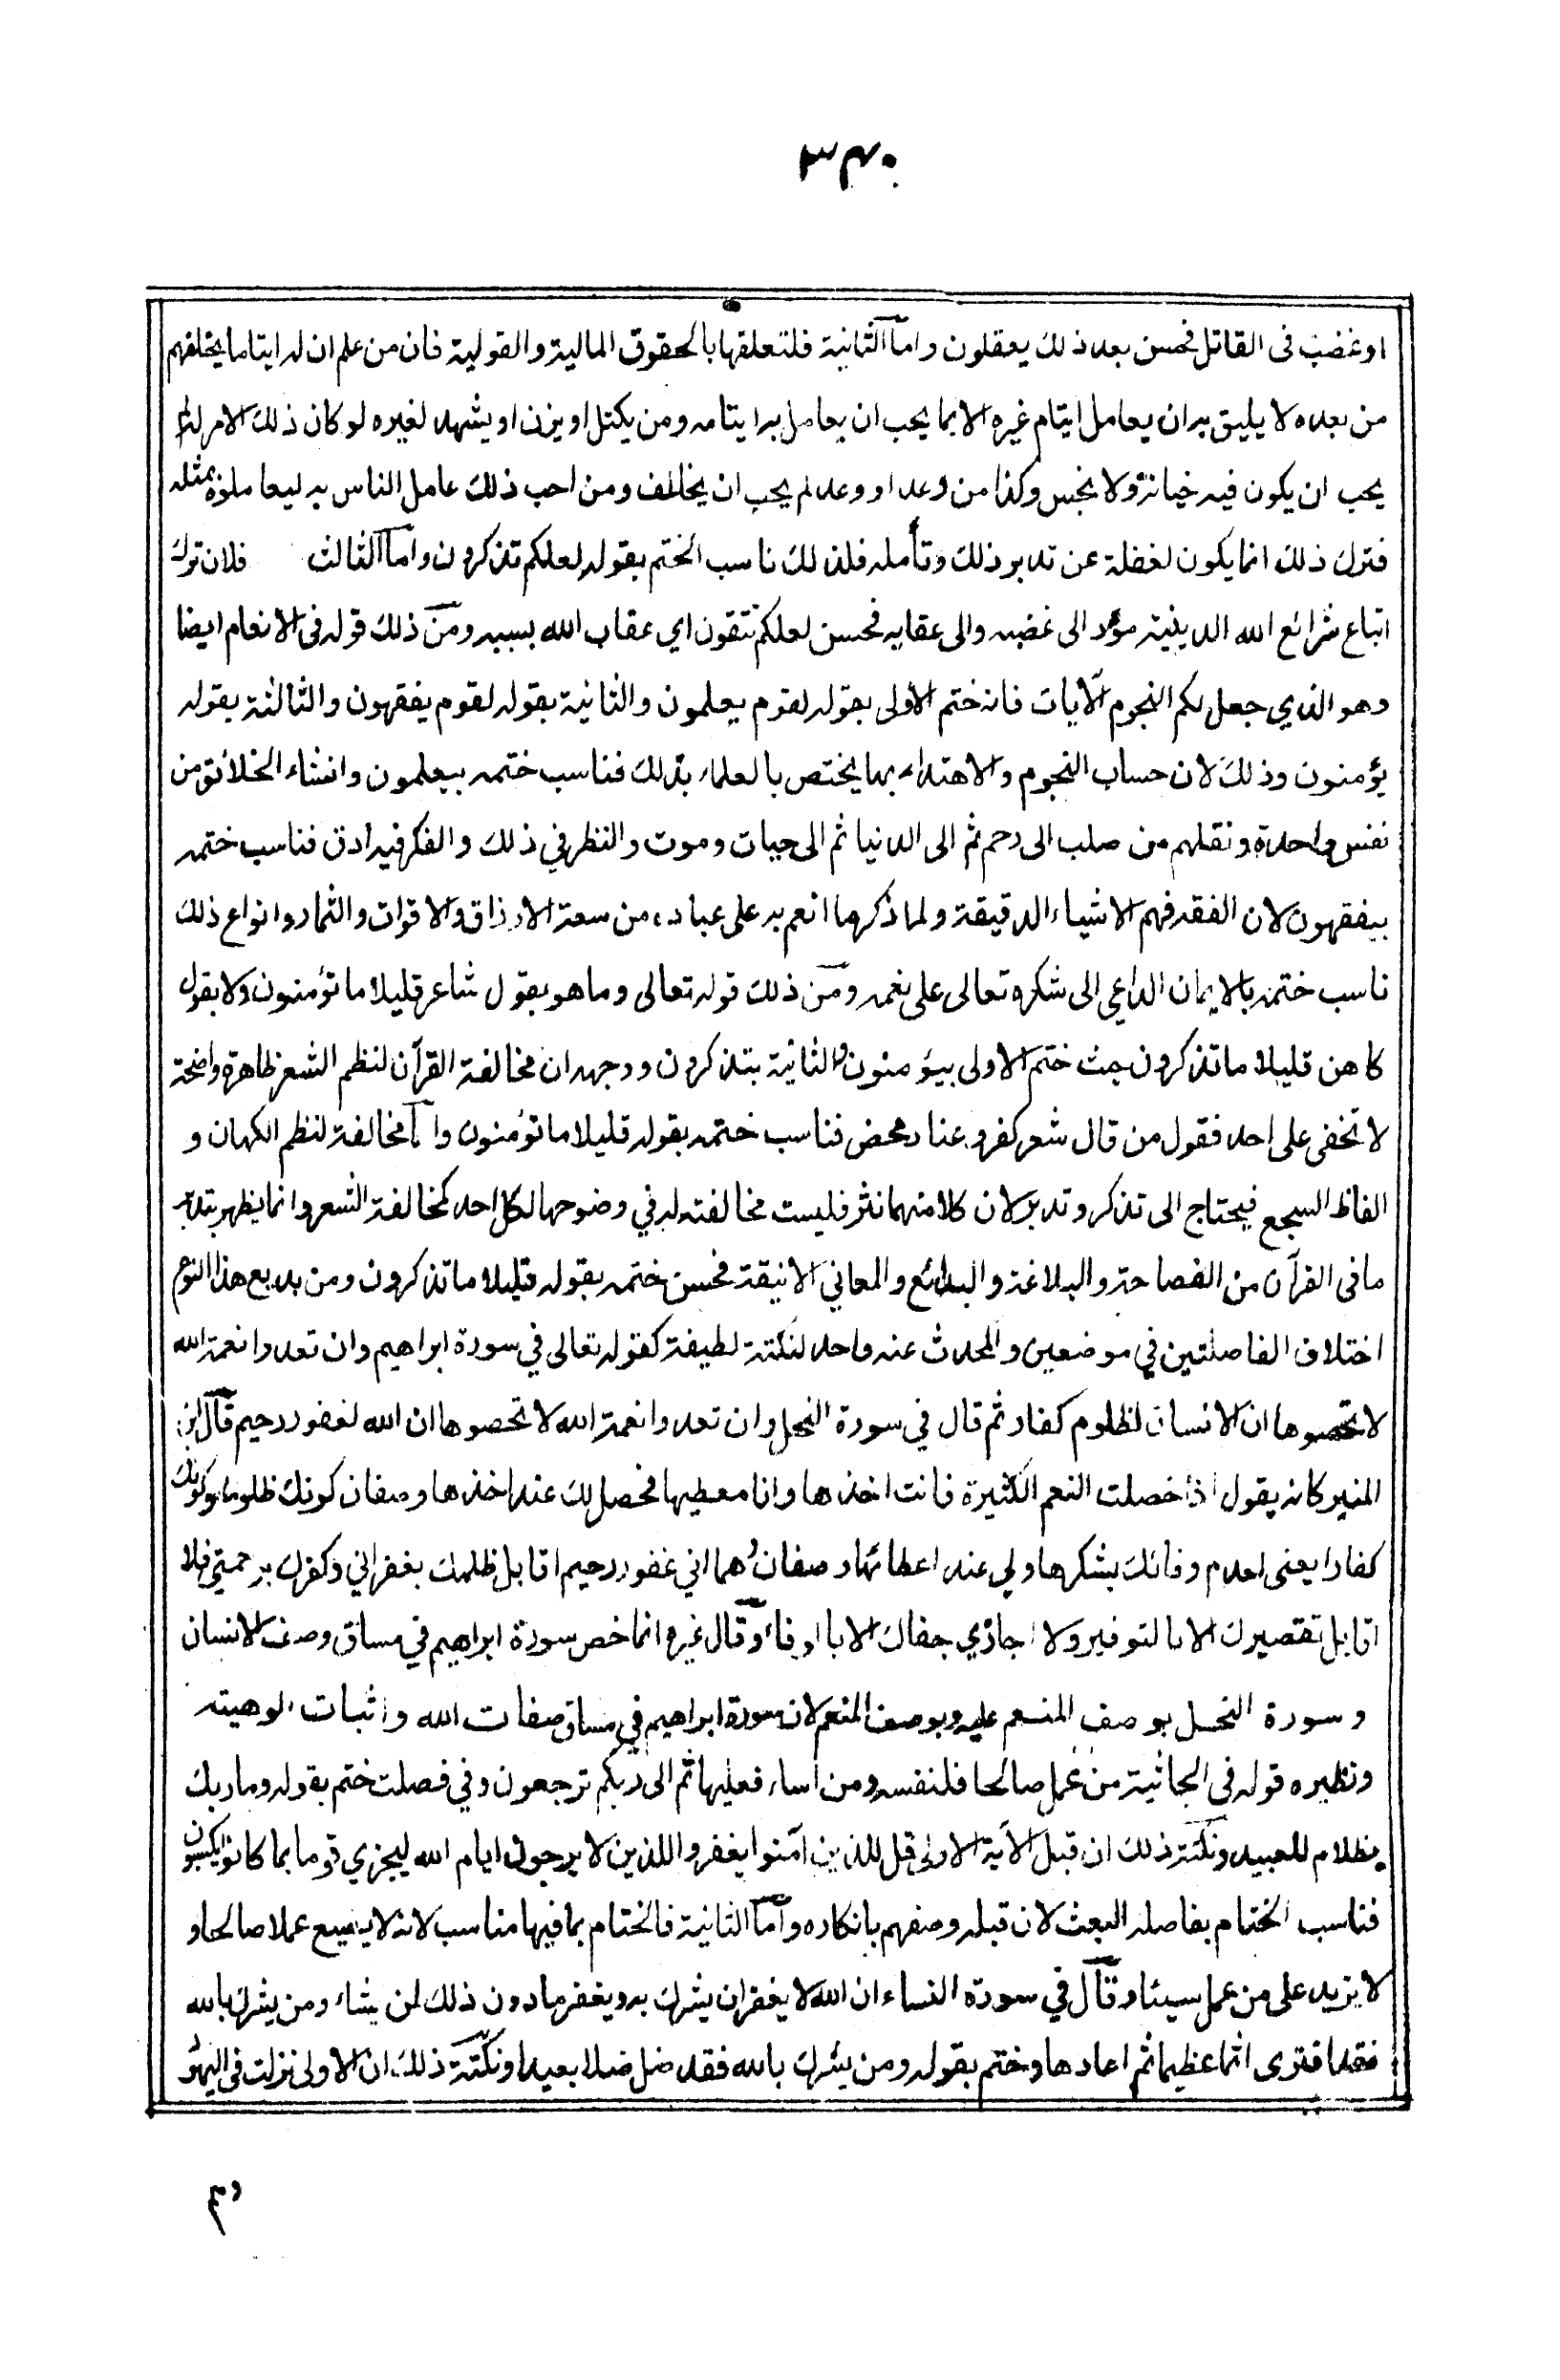 او غضب فى القاتل فحسن بعد ذلك يعقلون واما الثانية فلتعلقها بالحقوق المالية والقولية فان من علم ان له ايتاما يخلفهم
من بعده لا يليق به ان يعامل ايتام غيره الا بما يحب ان يعامل به ايتامه ومن يكتل او يزن او يشهد لغيره لو كان ذلك الامر له لم
يحب ان يكون فيه خيانة ولا بخس وكذا من وعد او وعد لم يحب ان يخالف ومن احب ذلك عامل الناس به ليعاملوه بمثله
فترك ذلك انما يكون لغفلة عن تدبر ذلك وتأمله فلذلك ناسب الختم بقوله لعلكم تذكرون واما الثالث فلان ترك
اتباع شرائع الله الدينية مؤد الى غضبه والى عقابه فحسن لعلكم تتقون اي عقاب الله بسببه ومن ذلك قوله فى الانعام ايضا
وهو الذي جعل لكم النجوم الآيات فانه ختم الاولى بقوله لقوم يعلمون والثانية بقوله لقوم يفقهون والثالثة بقوله
يؤمنون وذلك لان حساب النجوم والاهتداء بها يختص بالعلماء بذلك فناسب ختمه بيعلمون وانشاء الخلائق من
نفس واحدة ونقلهم من صلب الى رحم ثم الى الدنيا ثم الى حيات وموت والنظر في ذلك والفكر فيه ادق فناسب ختمه
بيفقهون لان الفقه فهم الاشياء الدقيقة ولما ذكر ما انعم به على عباده من سعة الارزاق والاقوات والثمار وانواع ذلك
ناسب ختمه بالايمان الداعي الى شكره تعالى على نعمه ومن ذلك قوله تعالى وما هو بقول شاعر قليلا ما تؤمنون ولا بقول
كاهن قليلا ما تذكرون حيث ختم الاولى بيؤمنون والثانية بتذكرون ووجهه ان مخالفة القرآن لنظم الشعر ظاهرة واضحة
لا تخفى على احد فقول من قال شعر كفر وعناد محض فناسب ختمه بقوله قليلا ما تؤمنون واما مخالفة لنظم الكهان و
الفاظ السجع فيحتاج الى تذكر وتدبر لان كلا منهما نثر فليست مخالفته له في وضوحها لكل احد كمخالفة الشعر وانما يظهر بتدبر
ما فى القرآن من الفصاحة والبلاغة والبدائع والمعاني الانيقة فحسن ختمه بقوله قليلا ما تذكرون ومن بديع هذا النوع
اختلاف الفاصلتين في موضعين والمحدث عنه واحد لنكتة لطيفة كقوله تعالى في سورة ابراهيم وان تعدوا نعمة الله
لا تحصوها ان الانسان لظلوم كفار ثم قال في سورة النحل وان تعدوا نعمة الله لا تحصوها ان الله لغفور رحيم قال ابن
المنير كانه يقول اذا حصلت النعم الكثيرة فانت اخذها وانا معطيها فحصل لك عند اخذها وصفان كونك ظلوما وكونك
كفارا يعنى لعدم وفائك بشكرها ولي عند اعطائها وصفان وهما اني غفور رحيم اقابل ظلمك بغفراني وكفرك برحمتي فلا
اقابل تقصيرك الا بالتوفير ولا اجازي جفاك الا بالوفاء وقال غيره انما خص سورة ابراهيم في مساق وصف الانسان
وسورة النحل بوصف المنعم عليه وبوصف المنعم لان سورة ابراهيم في مساق صفات الله واثبات الوهيته
ونظيره قوله فى الجاثية من عمل صالحا فلنفسه ومن اساء فعليها ثم الى ربكم ترجعون وفي فصلت ختم بقوله وما ربك
بظلام للعبيد ونكتة ذلك ان قبل الآية الاولى قل للذين آمنوا يغفروا للذين لا يرجون ايام الله ليجزي قوما بما كانوا يكسبون
فناسب الختام بفاصلة البعث لان قبله وصفهم بانكاره واما الثانية فالختام بما فيها مناسب لانه لا يضيع عملا صالحا و
لا يزيد على من عمل سيئا وقال في سورة النساء ان الله لا يغفر ان يشرك به ويغفر ما دون ذلك لمن يشاء ومن يشرك بالله
فقد افترى اثما عظيما ثم اعادها وختم بقوله ومن يشرك بالله فقد ضل ضلالا بعيدا ونكتة ذلك ان الاولى نزلت فى اليهود